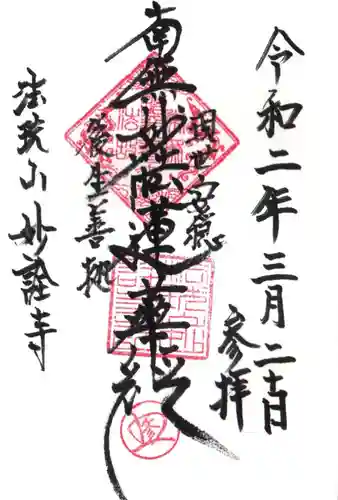 令和二年三月二十日
参拝
現世安穏
南無妙法蓮華経
後生善処
法筑山妙證寺